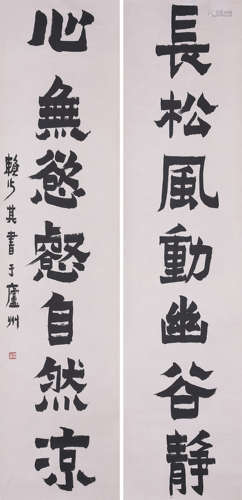 長松風動幽谷靜
心無慾壑自然涼
賴少其書于廬州